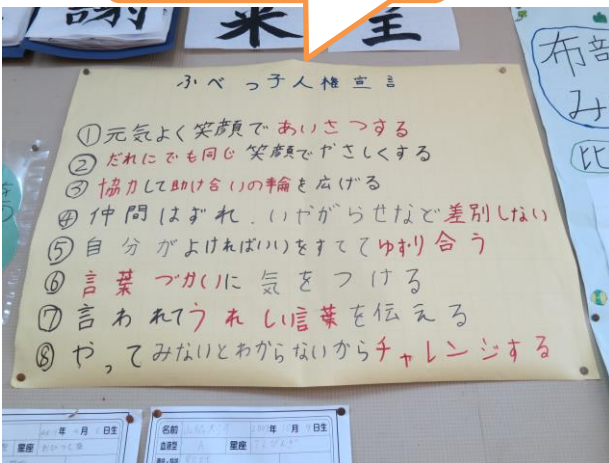 謝
ふべっ子人権宣言
①元気よく笑顔であいさつする
②だれにでも同じ笑顔でやさしくする
③協力して助け合いの輪を広げる
④仲間はずれ、いやがらせなど差別しない
⑤自分がよければいいをすててゆずり合う
⑥言葉づかいに気をつける
⑦言われてうれしい言葉を伝える
⑧やってみないとわからないからチャレンジする
布部
み
比
年 月 日生
星座
名前 年 月 日生
血液型 A 星座